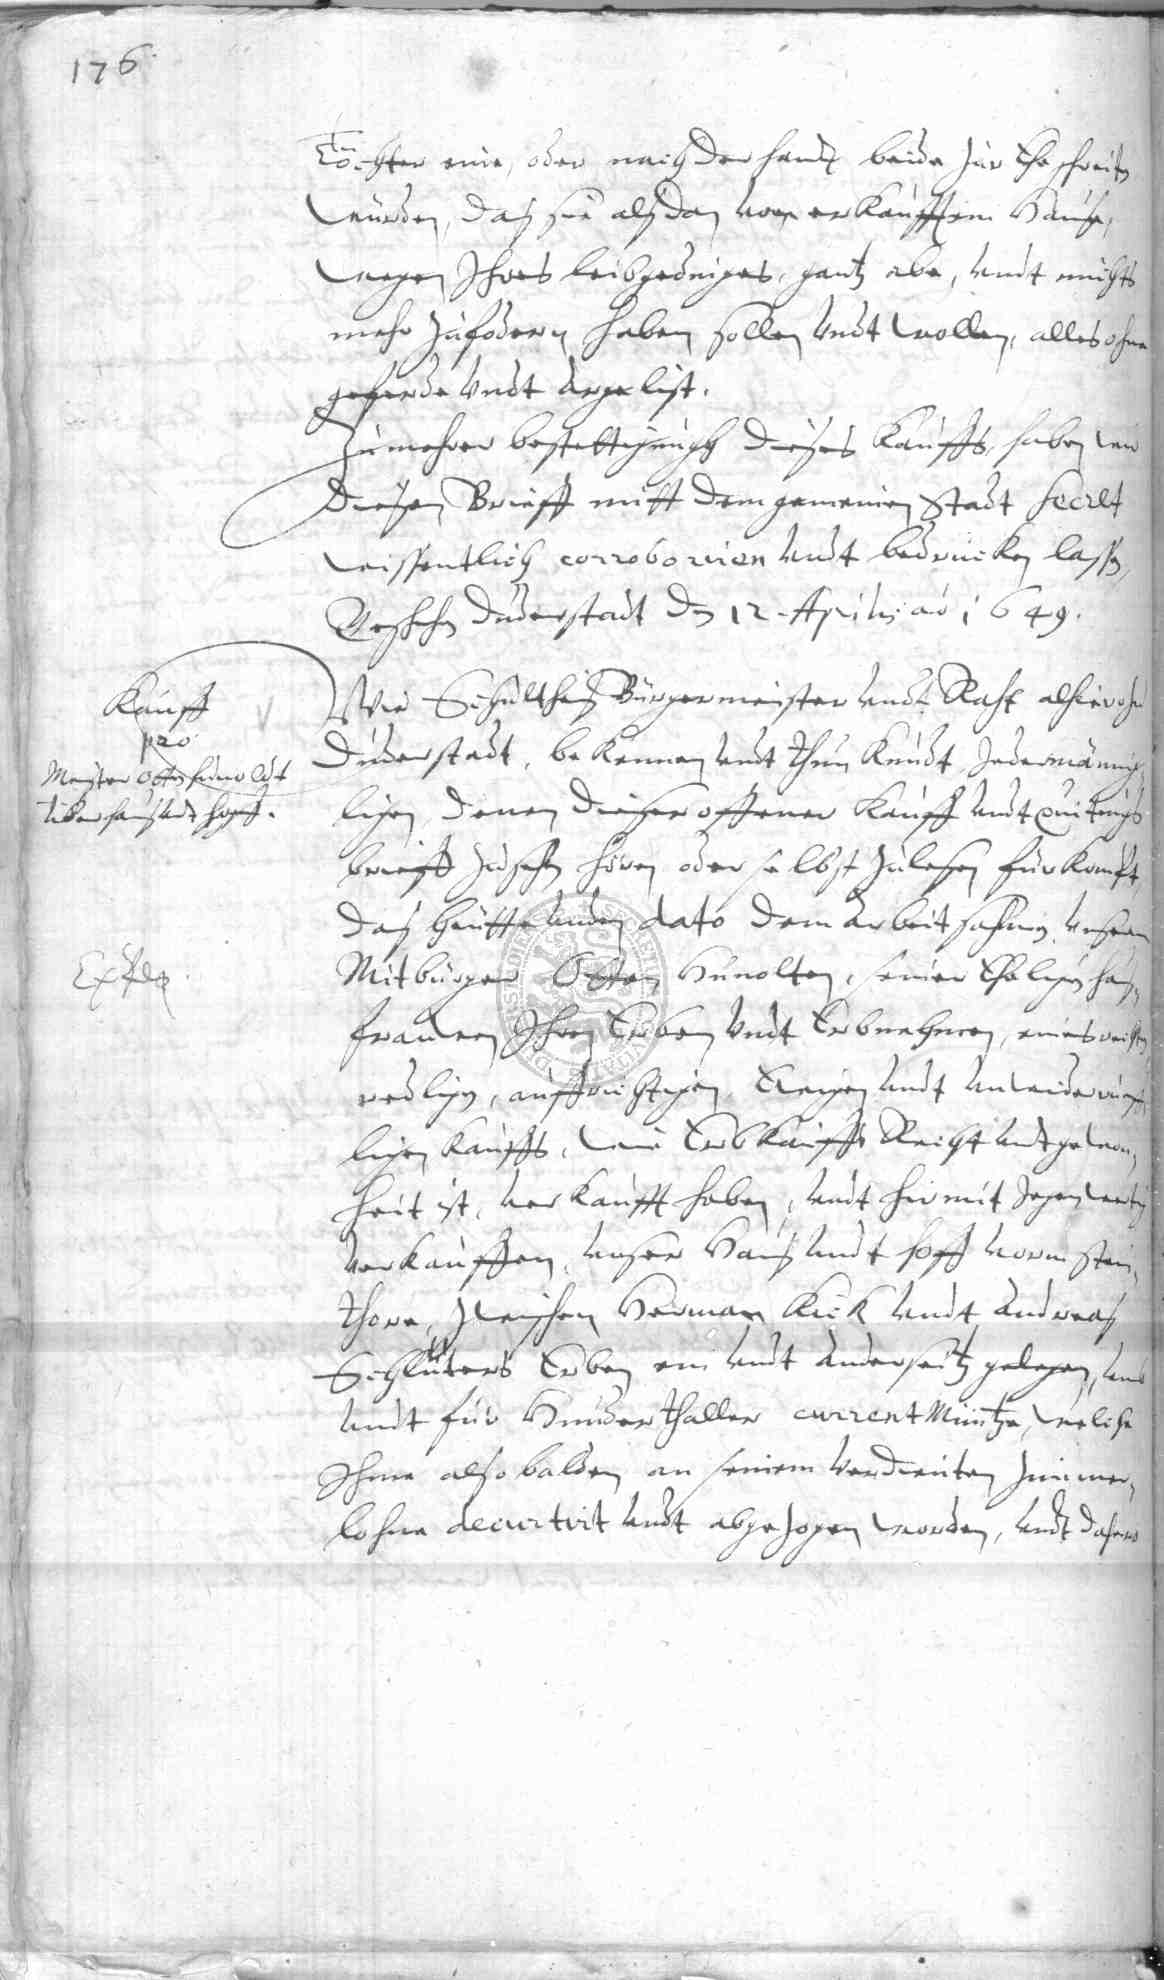 176.
Töchter eine, oder nach der handt beide zur Ehe schreiten
würden, daß sie alßdan vom erkaufftem Hause,
wegen Ihres leibgedinges, gantz abe, undt nichts
mehr zufodern haben sollen undt wollen, alles ohne
geferde undt argelist.
Zu mehrer bestettigungh dieses Kauffs, haben wir
diesen Brieff mitt dem gemeinen Stadt Secret
wissentlich corroboriren undt bedrucken lassen,
Geschehen Duderstadt den 12. Aprilis ao 1649.
Kauff
pro
Meister Otto Hunoldt
über hauß undt hoff.
Wir Schultheiß Bürgermeister undt Raht alhier zu
Duderstadt, bekennen undt thun kundt Jedermännig-
lichen, denen dieser offener Kauff undt quitungs
brieff zusehen hören oder selbst zulesen fürkompt,
daß heutte unden dato dem arbeitsahmen unserm
Mitbürger Otten Hunolten, seiner Ehelichen hauß-
frauwen Ihren Erben undt Erbnehmen, eines rechten
redlichen, auffrichtigen, Ewigen undt unwiderruff-
lichen Kauffs, wie Erbkauffs Recht undt gewon-
heit ist, verkaufft haben, undt hiermit Jegenwertig
verkauffen, unser Hauß undt hoff vorm stein-
thore, zwischen Herman Kick undt Andreaß
Schlüters Erben ein undt anderseitz gelegen, umb
undt für Hundert thaller current Müntze, welche
Ihme also balden an seinem verdienten Zimmer-
lohne decurtirt undt abgezogen worden, undt dahero